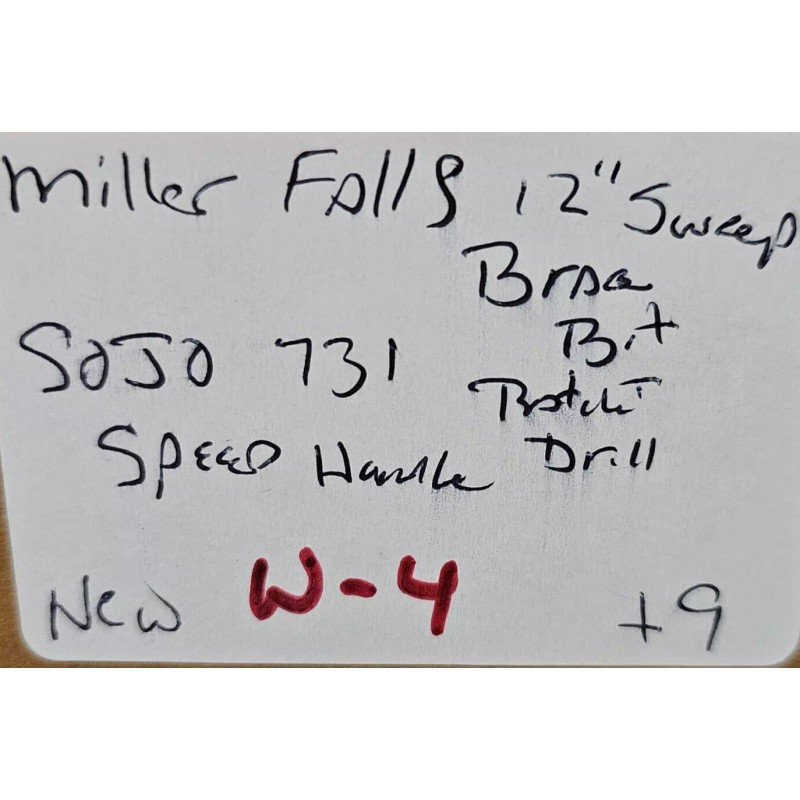 Miller Falls 12" Sweep
Brace
Bit
SOJO 731
Ratchet
Speed Handle Drill
New W-4 +9